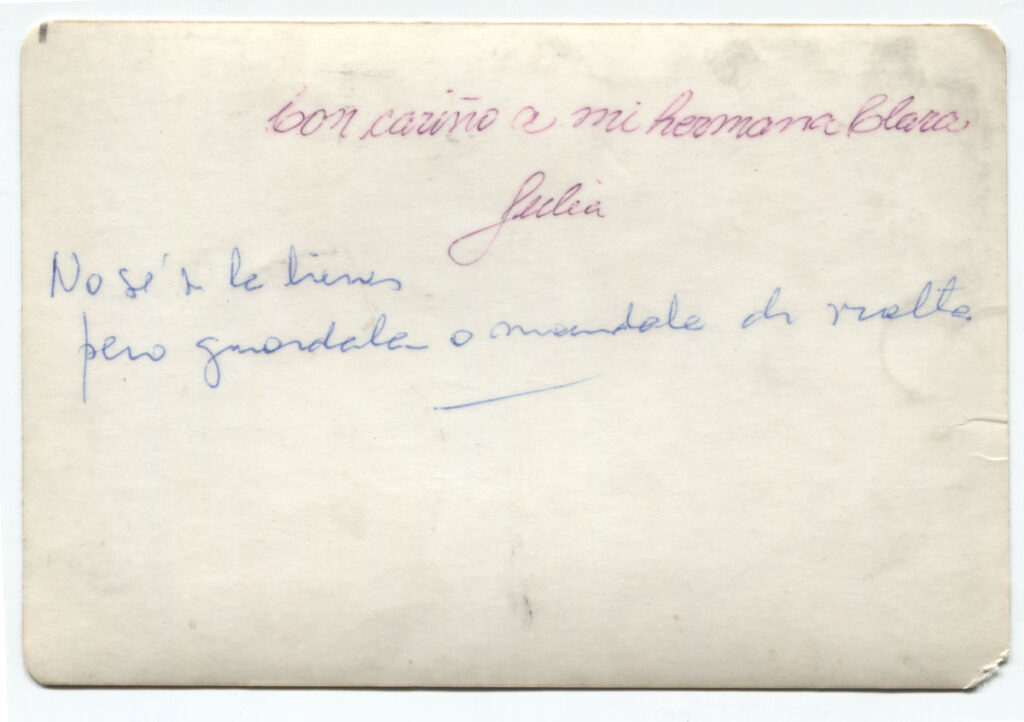 Con cariño a mi hermana Clara
Julia
No sé si la tienes
pero guardala o mandala de vuelta